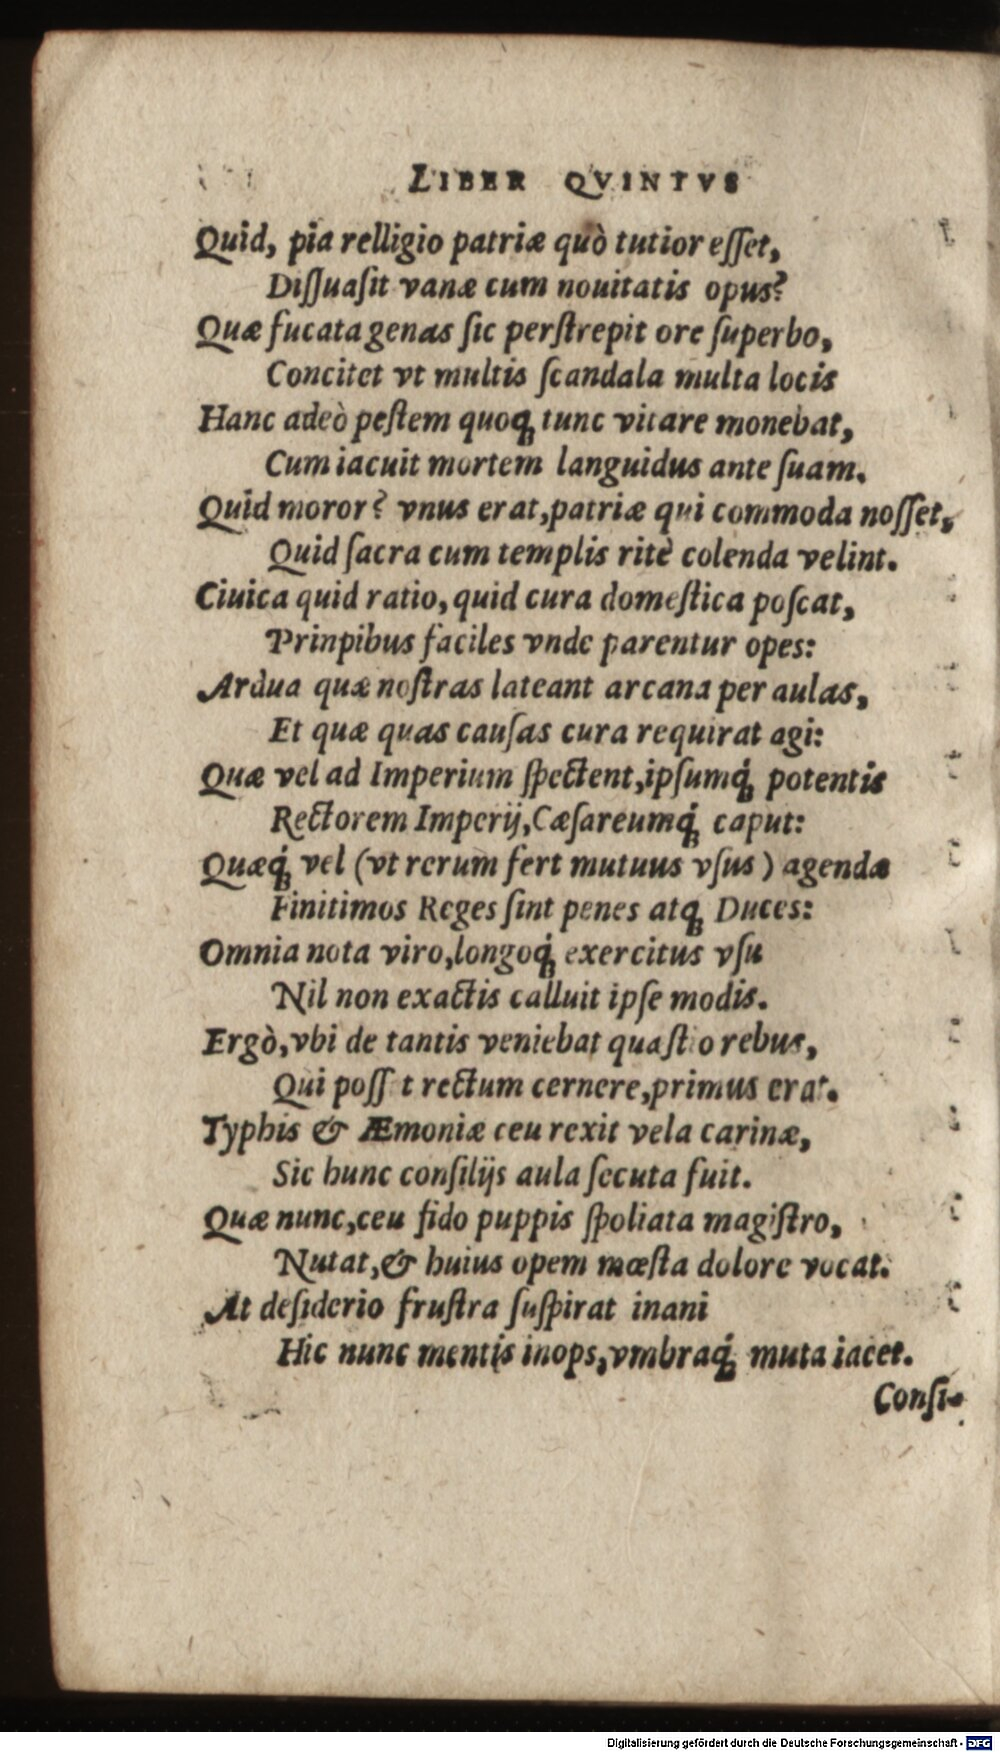 LIBER QVINTVS
Quid, pia relligio patriæ quò tutior esset,
Dissuasit vanæ cum nouitatis opus?
Quæ fucata genas sic perstrepit ore superbo,
Concitet vt multis scandala multa locis
Hanc adeò pestem quoq; tunc vitare monebat,
Cum iacuit mortem languidus ante suam.
Quid moror? vnus erat, patriæ qui commoda nosset,
Quid sacra cum templis ritè colenda velint.
Ciuica quid ratio, quid cura domestica poscat,
Prinpibus faciles vnde parentur opes:
Ardua quæ nostras lateant arcana per aulas,
Et quæ quas causas cura requirat agi:
Quæ vel ad Imperium spectent, ipsumq́; potentis
Rectorem Imperij, Cæsareumq́; caput:
Quæq́; vel (vt rerum fert mutuus vsus) agenda
Finitimos Reges sint penes atq; Duces:
Omnia nota viro, longoq́; exercitus vsu
Nil non exactis calluit ipse modis.
Ergò, vbi de tantis veniebat quæstio rebus,
Qui poss t rectum cernere, primus erat.
Typhis & Æmoniæ ceu rexit vela carinæ,
Sic hunc consilijs aula secuta fuit.
Quæ nunc, ceu fido puppis spoliata magistro,
Nutat, & huius opem mœsta dolore vocat.
At desiderio frustra suspirat inani
Hic nunc mentis inops, vmbraq́; muta iacet.
Consi-
Digitalisierung gefördert durch die Deutsche Forschungsgemeinschaft - DFG